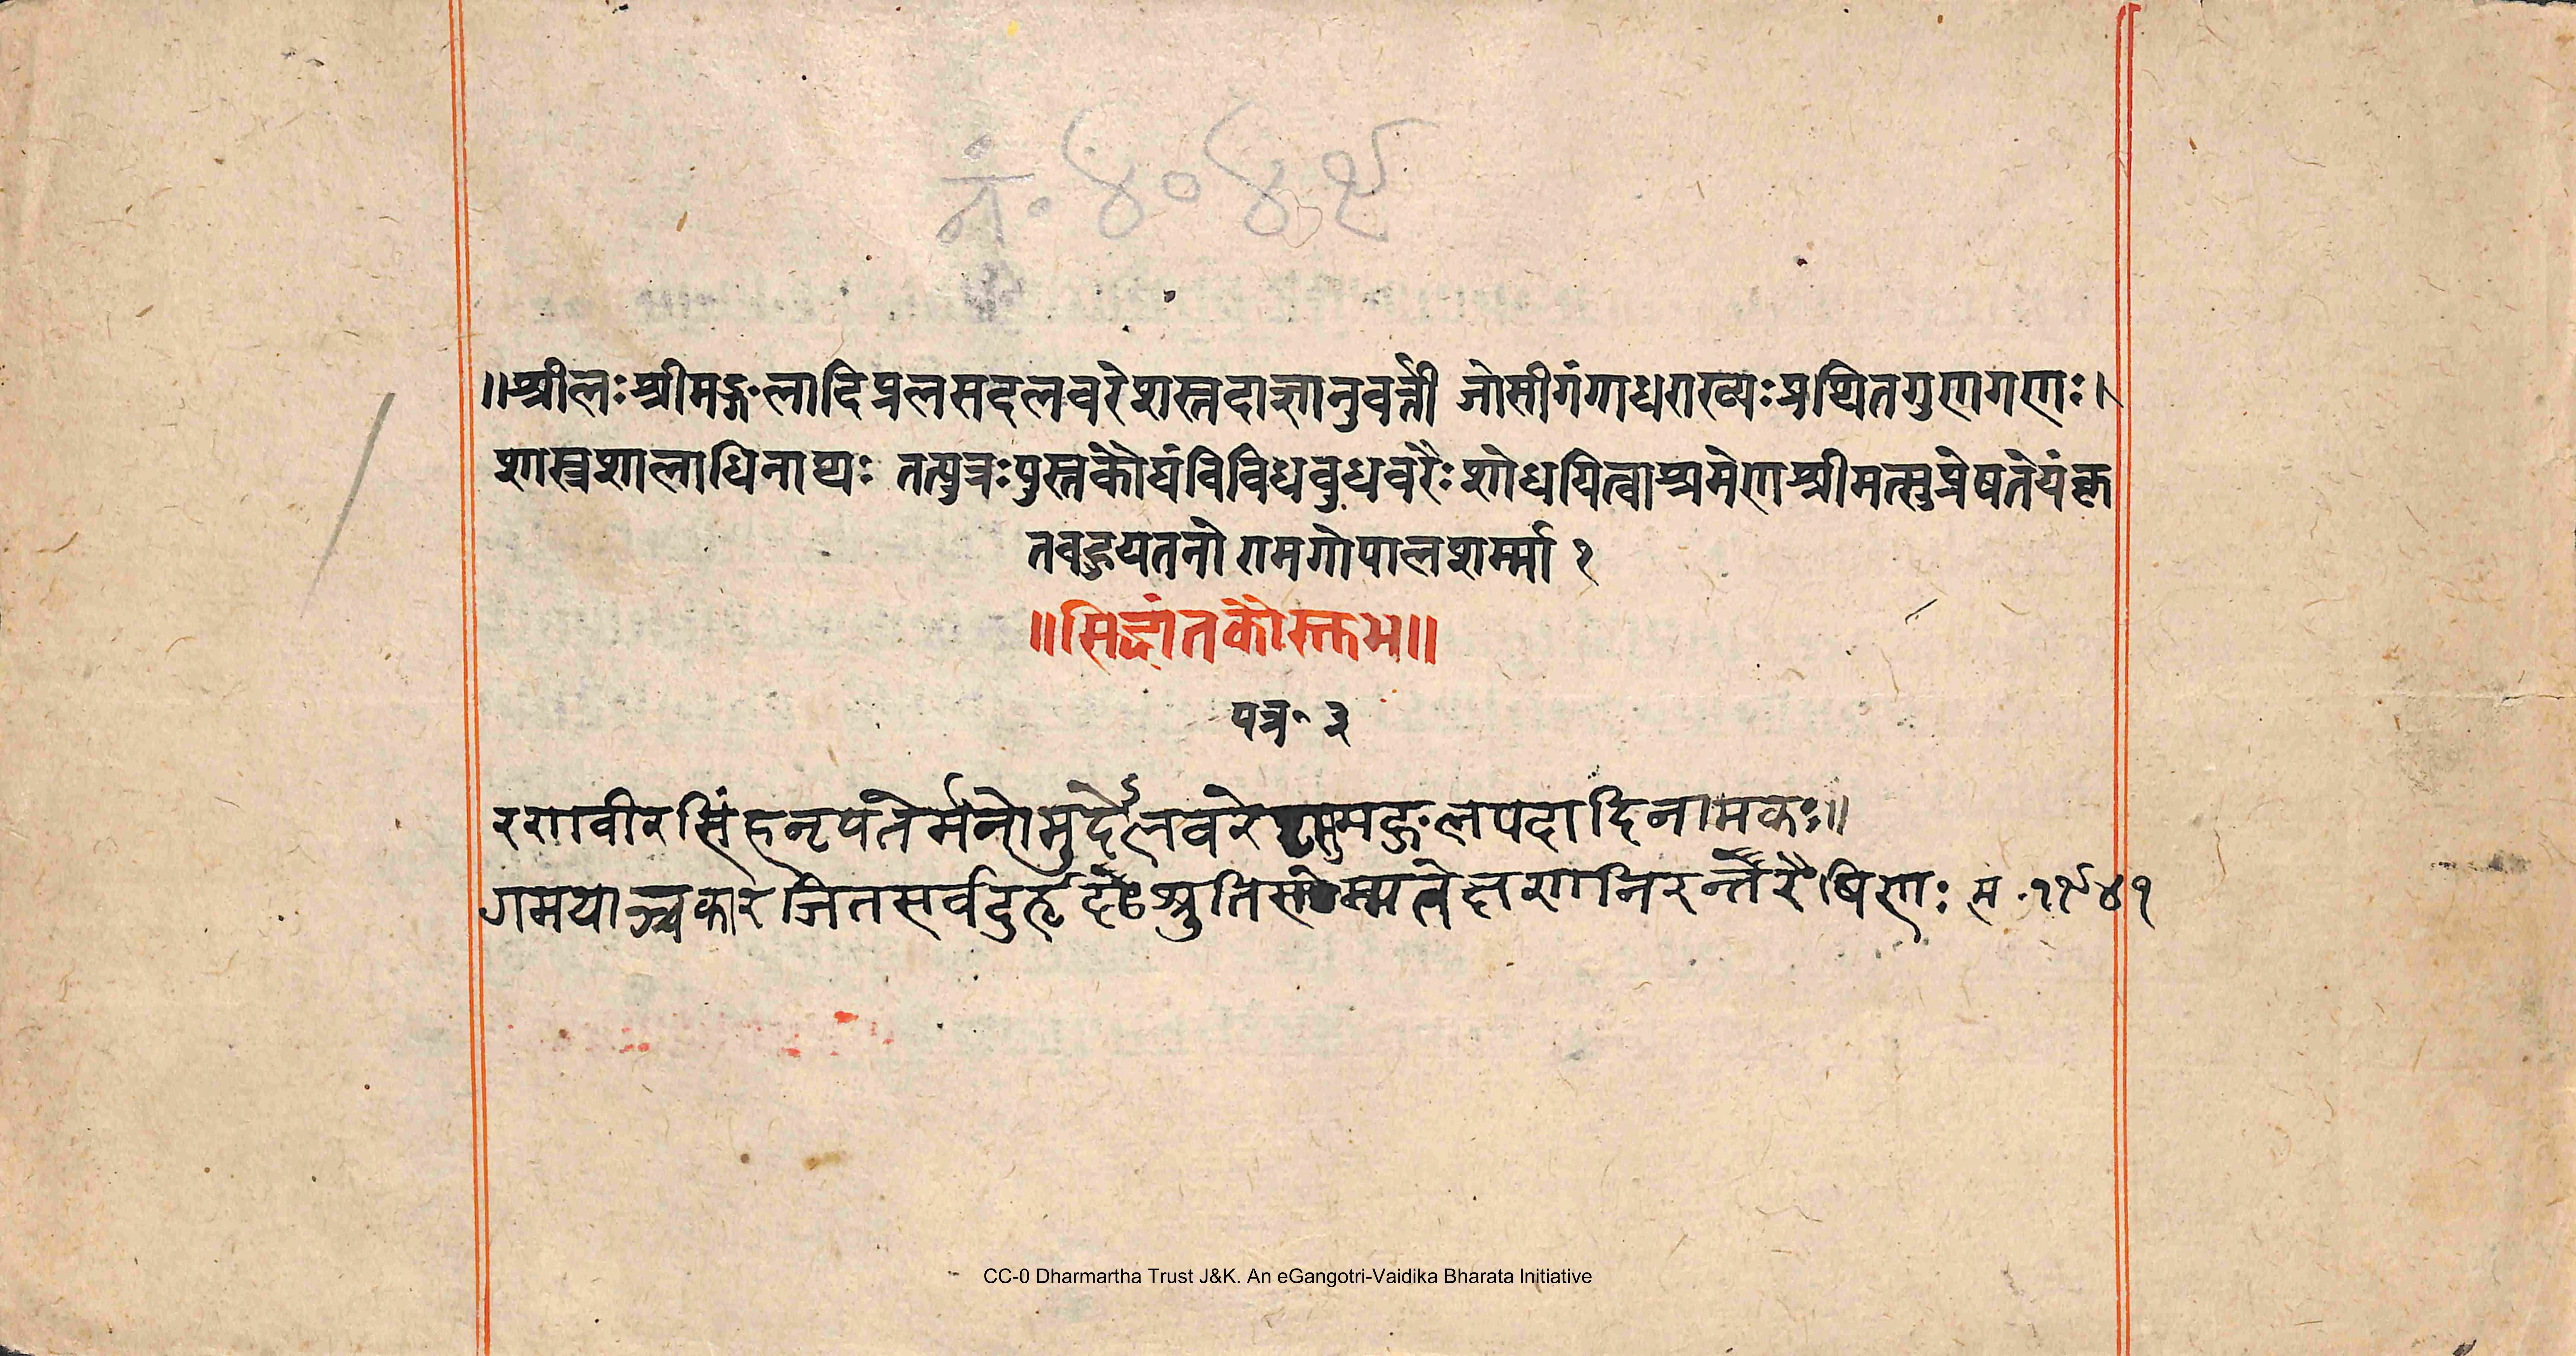 नं॰ ४०४९
॥श्रीलःश्रीमङ्गलादिप्रलसदलवरेशस्तदाज्ञानुवर्त्ती जोसीगंगाधराख्यःप्रथितगुणगणः।
शास्त्रशालाधिनाथ्यः तत्पुत्रःपुस्तकौघंविविधबुधवरैःशोधयित्वाश्रमेणश्रीमत्सुप्रेषतेयं
तवद्धृयतनो रामगोपालशर्म्मा १
॥सिद्धांतकौस्तुभ॥
पत्र॰ ३
रणवीरसिंहनृपतेर्मनोमुदेऽलवरे मङ्गलपदादिनामकः॥
गमयाञ्चकार जितसर्वदुर्हृदः श्रुति निरन्तरैषिणः स॰१९४१
CC-0 Dharmartha Trust J&K. An eGangotri-Vaidika Bharata Initiative